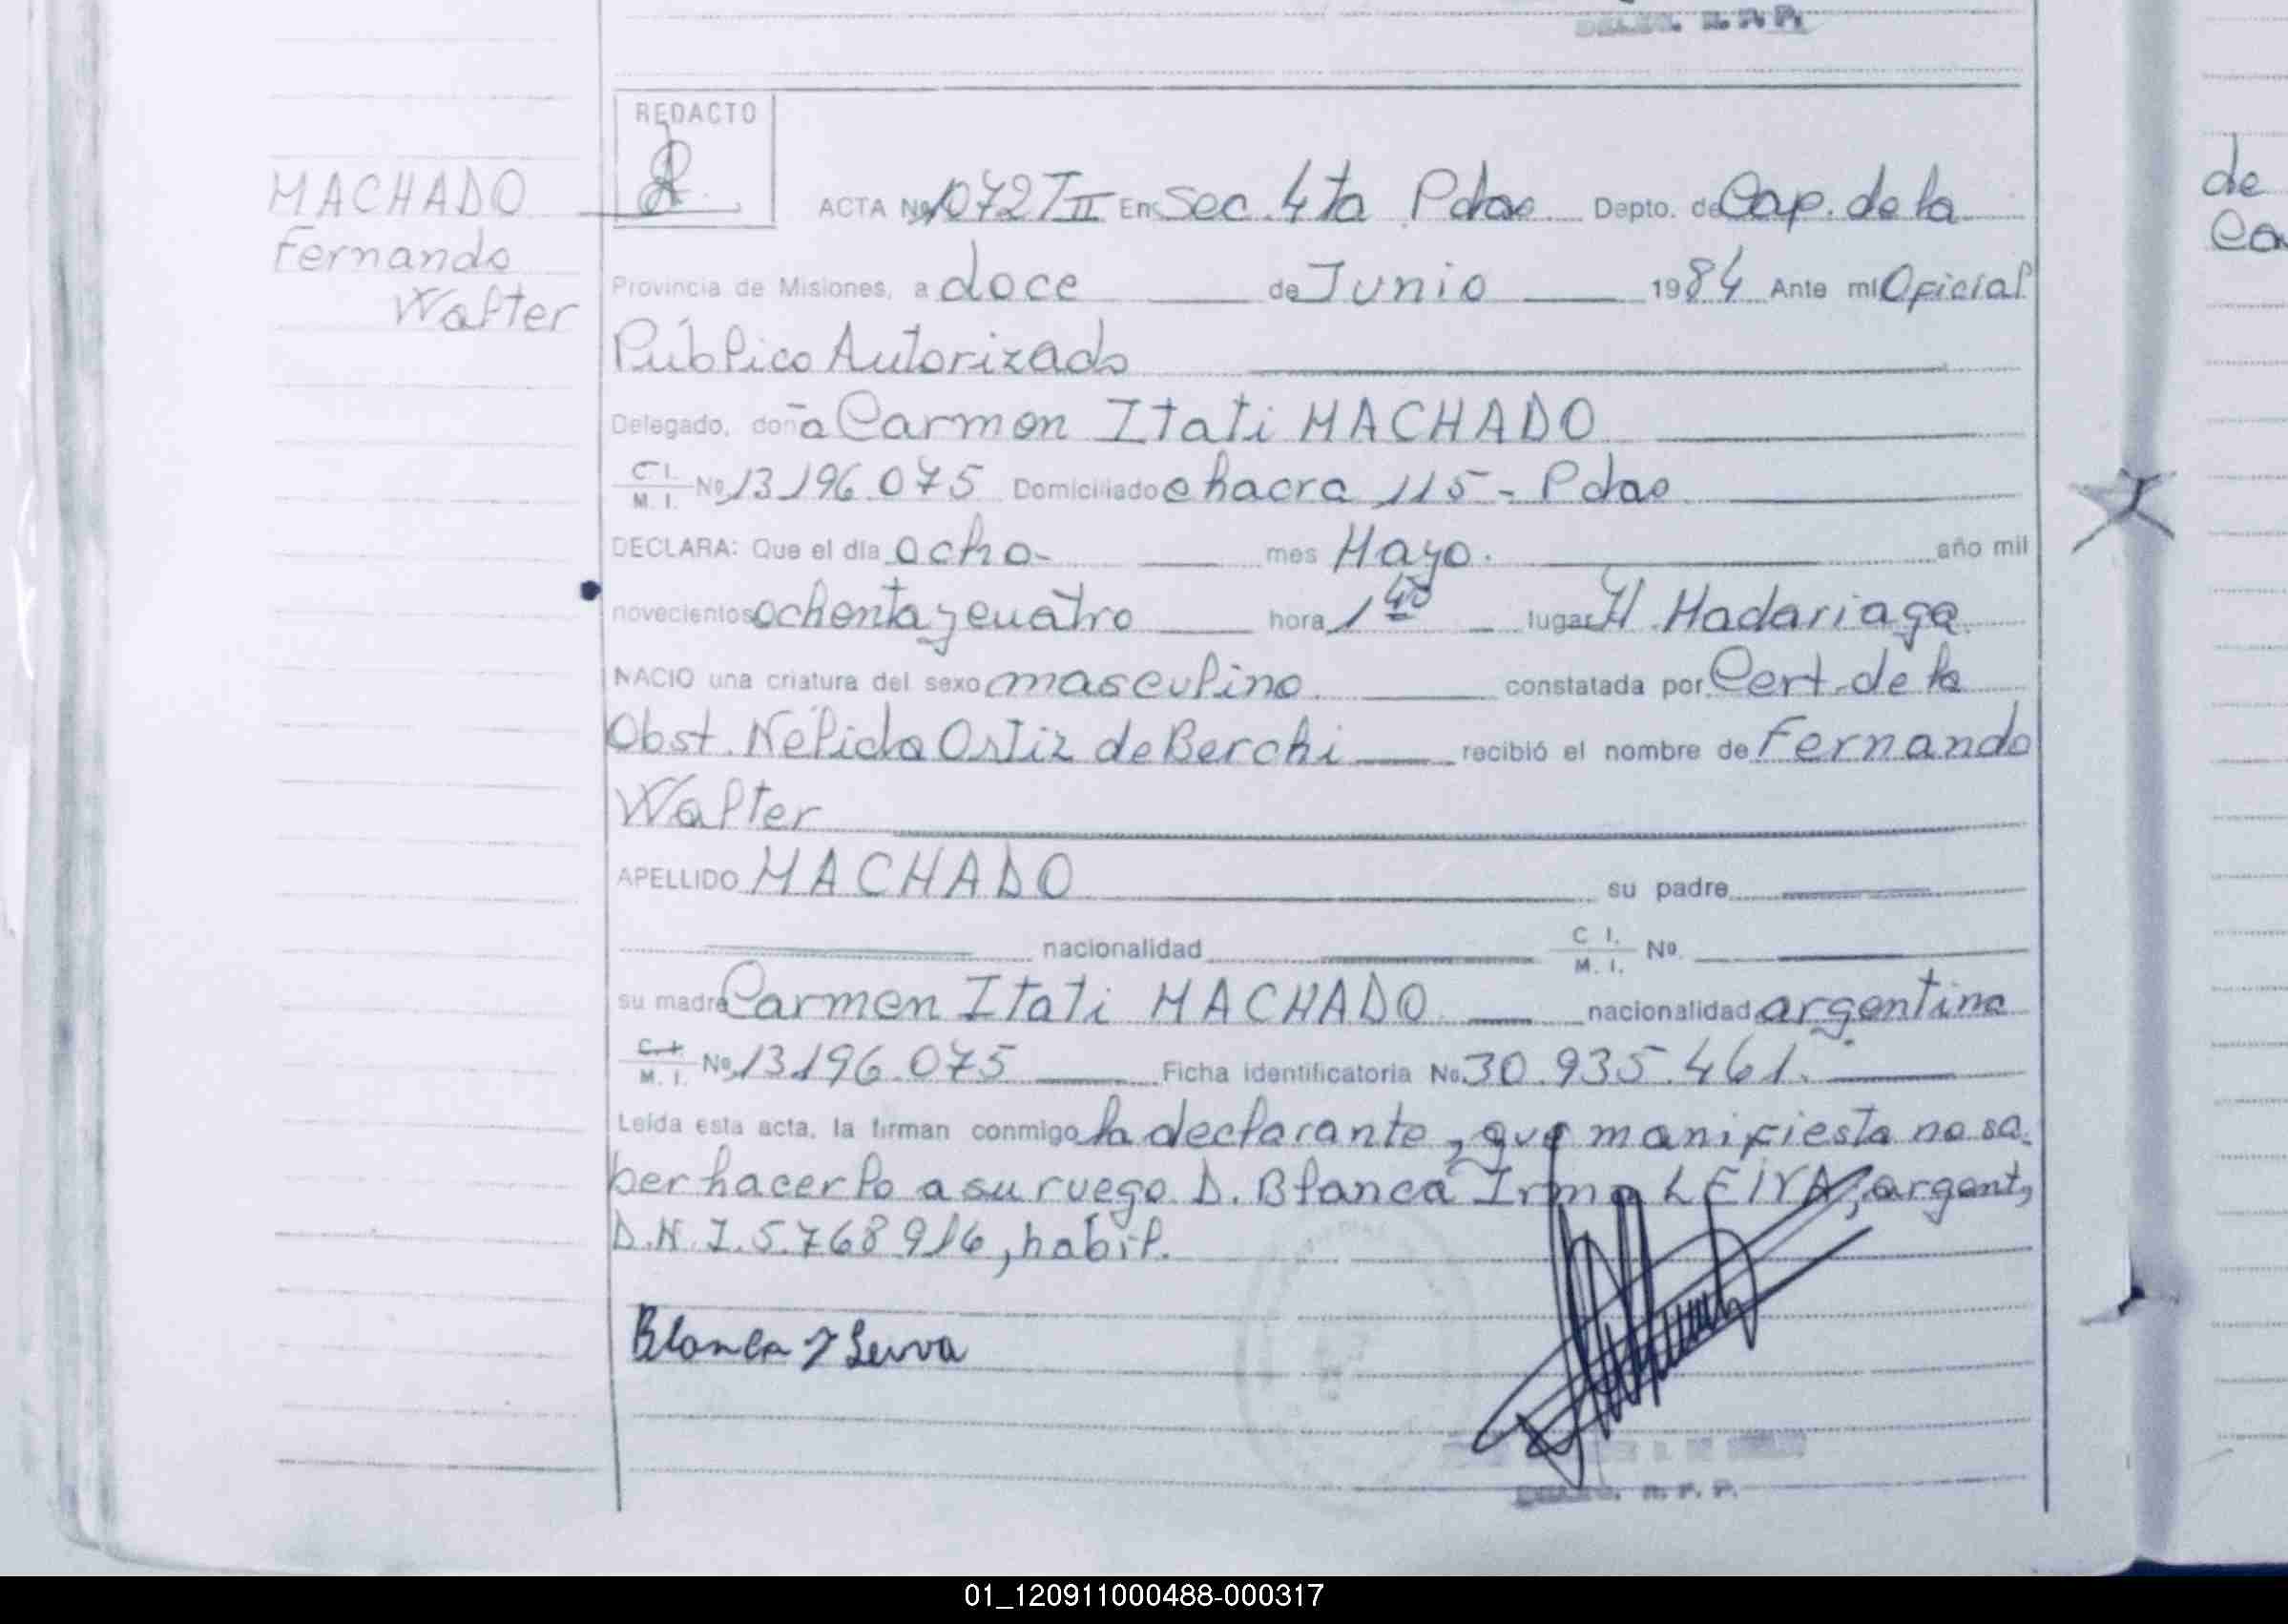 DELEG. R. P. P.
REDACTO
MACHADO
Fernando
Walter
ACTA Nº 1072 T II En Sec. 4ta Pdas Depto. de Cap. de la
Provincia de Misiones, a doce de Junio 1984 Ante mi Oficial
Público Autorizado
Delegado, doña Carmen Itati MACHADO
C I. M. I. Nº 13.196.075 Domiciliado chacra 115 - Pdas
DECLARA: Que el día ocho - mes Mayo. año mil
novecientos ochenta y cuatro hora 1 40 lugar H. Madariaga
NACIO una criatura del sexo masculino constatada por Cert. de la
Obst. Nélida Ortiz de Berchi recibió el nombre de Fernando
Walter
APELLIDO MACHADO su padre
nacionalidad C I. M. I. Nº
su madre Carmen Itati MACHADO nacionalidad argentina
C. I. M. I. Nº 13.196.075 Ficha identificatoria Nº 30.935.461.
Leída esta acta, la firman conmigo la declarante, que manifiesta no sa
ber hacerlo a su ruego D. Blanca Irma LEIVA, argent,
D.N.I. 5.768.916, habil.
Blanca I Leiva
R. P. P.
de
Ca
01_120911000488-000317